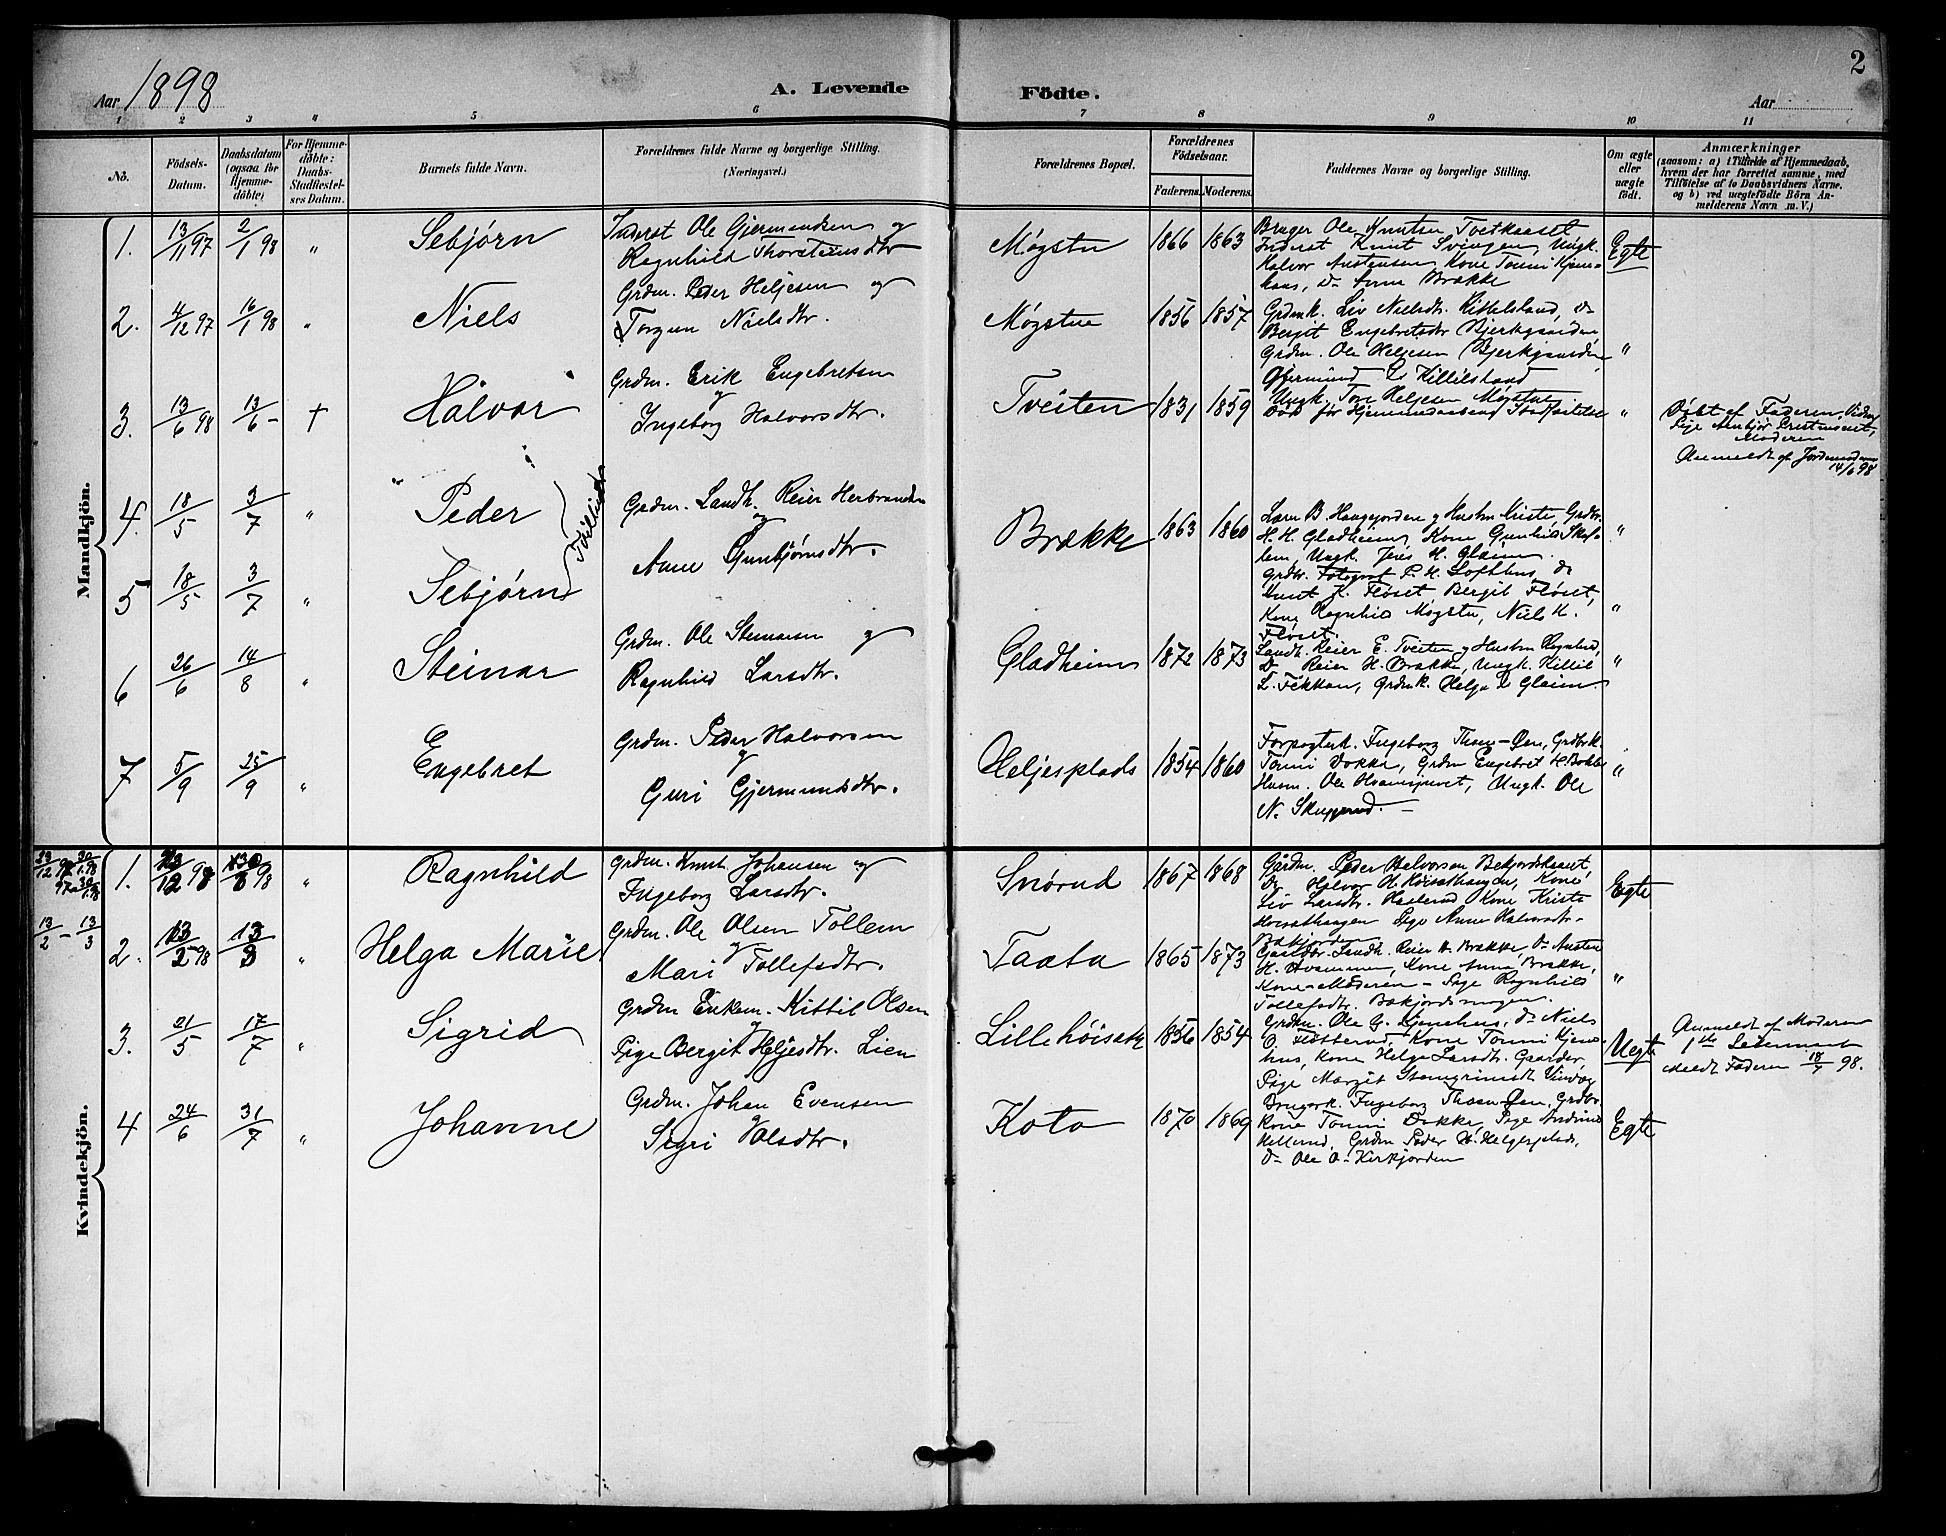 2
Aar 1898
A. Levende
Födte.
Aar
1 2 3 4 5 6 7 8 9 10 11
No.
Födsels-Datum.
Daabsdatum (ogsaa for Hjemme-döbte)
For Hjemme-döbte: Daabs-Stadfæstel-ses Datum.
Barnets fulde Navn.
Forældrenes fulde Navne og borgerlige Stilling.
(Næringsvei.)
Forældrenes Bopæl.
Forældrenes Födselsaar.
Faderens. Moderens.
Faddernes Navne og borgerlige Stilling.
Om ægte eller uægte födt.
Anmærkninger
(saasom: a) i Tilfælde af Hjemmedaab,
hvem der har forrettet samme, med
Tilföielse af to Daabsvidners Navne.
og b) ved uægtefödte Börn An-
melderens Navn m. V.)
Mandkjön.
1. 13/11 97 2/1 98 " Sebjørn
Inderst Ole Gjermundsen og
Ragnhild Thorsteinsdtr
Møgstu 1866 1863
Bruger Ole Knutsen Tveitkaaset
Inderst Knut Svingen, Ungk.
Halvor Austensen, Kone Tonni Kjøm-
hus, do Anne Brække
Egte
2. 4/12 97 16/1 98 " Niels
Grdm. Peder Heljesen og
Torgun Nielsdtr.
Møgstue 1856 1857
Grdmk. Liv Nielsdt. Kittelsland, do
Bergit Engebretsdtr Bjerkgaarden,
Grdm. Ole Heljesen Bjerkgaarden
Gjermund L. Killilsland
Ungk. Tore Heljesen Møgstue
"
3. 13/6 98 13/6 - † Halvor
Grdm. Erik Engebretsen
og
Ingeborg Halvorsdtr.
Tveiten 1831 1859
Død før Hjemmedaabens Stadfæstelse
"
Døbt af Faderen, Vidner
Pige
Moderen
Anmeldt af Jordemoderen
14/6 98
4. 18/5 3/7 " Peder
Tvillinger
Grdm. Landh. Reier Herbrandsen
og
Anne Gunbjørnsdtr.
Brække 1863 1860
Lærer B. Haugejorden og Hustru Kristi, Grdbr.
H. H. Gladheim, Kone Gunhild Skaf-
lem, Ungk. Jens H. Glaim.
"
5 18/5 3/7 " Sebjørn
Grdbr. Fotograf P. H. Lofthus, do
Knut K. Fløset, Bergit Fløset,
Kone Ragnhild Møgstu, Niels K.
Fløset.
"
6 26/6 14/8 " Steinar
Grdm. Ole Steinarsen og
Ragnhild Larsdtr.
Gladheim 1872 1873
Landh. Reier E. Tveiten og Hustru Ragnhild,
Do Reier H. Brække, Ungk. Killil
L. Fekkan, Grdmk. Helga L Glaim.
"
7 5/9 25/9 " Engebret
Grdm. Peder Halvorsen
og
Guri Gjermundsdtr.
Heljesplads 1854 1860
Forpagterk. Ingeborg Thoen-Øen, Grdbrk.
Tonni Dokka, Grdm Engebret H Bakke
Husm. Ole Hvamsjuvet, Ungk. Ole
N. Skuggerud.
"
Kvindekjön.
23/12 97 30/1 98
97 30/1 98
1. 23/12 98 30/8 98 " Ragnhild
Grdm. Knut Johansen og
Ingeborg Larsdtr.
Snörud 1867 1868
Gårdm. Peder Halvorsen Bekjordskaaset,
Do Halvor H. Høisæthaugen, Kone
Liv Larsdtr. Hallerud, Kone Kristi
Høisæthaugen, Pige Anne Halvorsdtr.
Bakjorden
Egte
13/2 - 13/3
2. 13/2 98 13/3 " Helga Marie
Grdm. Ole Olsen Tollem
og
Mari Tollefsdtr.
Taata 1865 1873
Gaardbr. Landh. Reier H. Brække, do Austen
H. Hvammen, Kone Anne Brække,
Kone - Moderen - Pige Ragnhild
Tollefsdtr. Bakjordsmogen.
"
3. 21/5 17/7 " Sigrid
Grdm Enkem. Kittil Olsen
og
Pige Bergit Heljesdtr. Lien
Lillehöisæth 1856 1854
Grdm. Ole G. Kjømhus, do Niels
O. Fløtterud, Kone Tonni Kjøm-
hus, Kone Helga Larsdt. Gaarder,
Pige Margit Steingrimsdt Vindeg
Uegte
Anmeldt af Moderen
1ste Leiermaal
Meldt Faderen 18/7 98.
4 24/6 31/7 " Johanne
Grdm. Johan Evensen
Sigri Olsdtr.
Kota 1870 1869
Brugerk. Ingeborg Thoen-Øen, Grdbr.
Kone Tonni Dokka, Pige
Kellerud, Grdm Peder H. Heljesplads,
do Ole O. Kirkjorden
Egte